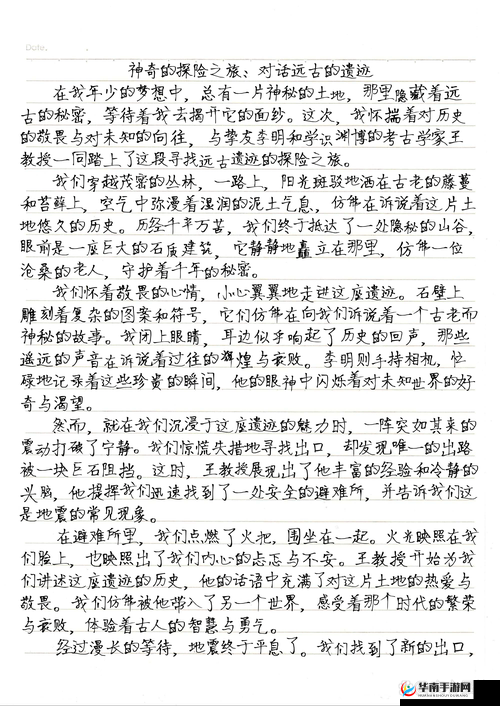 Date.
神奇的探险之旅、对话远古的遗迹
在我年少的梦想中，总有一片神秘的土地，那里隐藏着远
古的秘密，等待着我去揭开它的面纱。这次，我怀揣着对历史
的敬畏与对未知的向往，与挚友李明和学识渊博的考古学家王
教授一同踏上了这段寻找远古遗迹的探险之旅。
我们穿越茂密的丛林，一路上，阳光斑驳地洒在古老的藤蔓
和苔藓上，空气中弥漫着湿润的泥土气息，仿佛在诉说着这片土
地悠久的历史。历经千辛万苦，我们终于抵达了一处隐秘的山谷，
眼前是一座巨大的石质建筑，它静静地矗立在那里，仿佛一位
沧桑的老人，守护着千年的秘密。
我们怀着敬畏的心情，小心翼翼地走进这座遗迹。石壁上
雕刻着复杂的图案和符号，它们仿佛在向我们诉说着一个古老而
神秘的故事。我闭上眼睛，耳边似乎响起了历史的回声，那些
遥远的声音在诉说着过往的辉煌与衰败。李明则手持相机，忙
碌地记录着这些珍贵的瞬间，他的眼神中闪烁着对未知世界的好
奇与渴望。
然而，就在我们沉浸于这座遗迹的魅力时，一阵突如其来的
震动打破了宁静。我们惊慌失措地寻找出口，却发现唯一的出路
被一块巨石阻挡。这时，王教授展现出了他丰富的经验和冷静的
头脑，他提醒我们迅速找到了一处安全的避难所，并告诉我们这
是地震的常见现象。
在避难所里，我们点燃了火把，围坐在一起。火光映照在我
们脸上，也映照出了我们内心的忐忑与不安。王教授开始为我
们讲述这座遗迹的历史，他的话语中充满了对这片土地的热爱与
敬畏。我们仿佛被他带入了另一个世界，感受着那个时代的繁荣
与衰败，体验着古人的智慧与勇气。
经过漫长的等待，地震终于平息了。我们找到了新的出口，
华南手游网